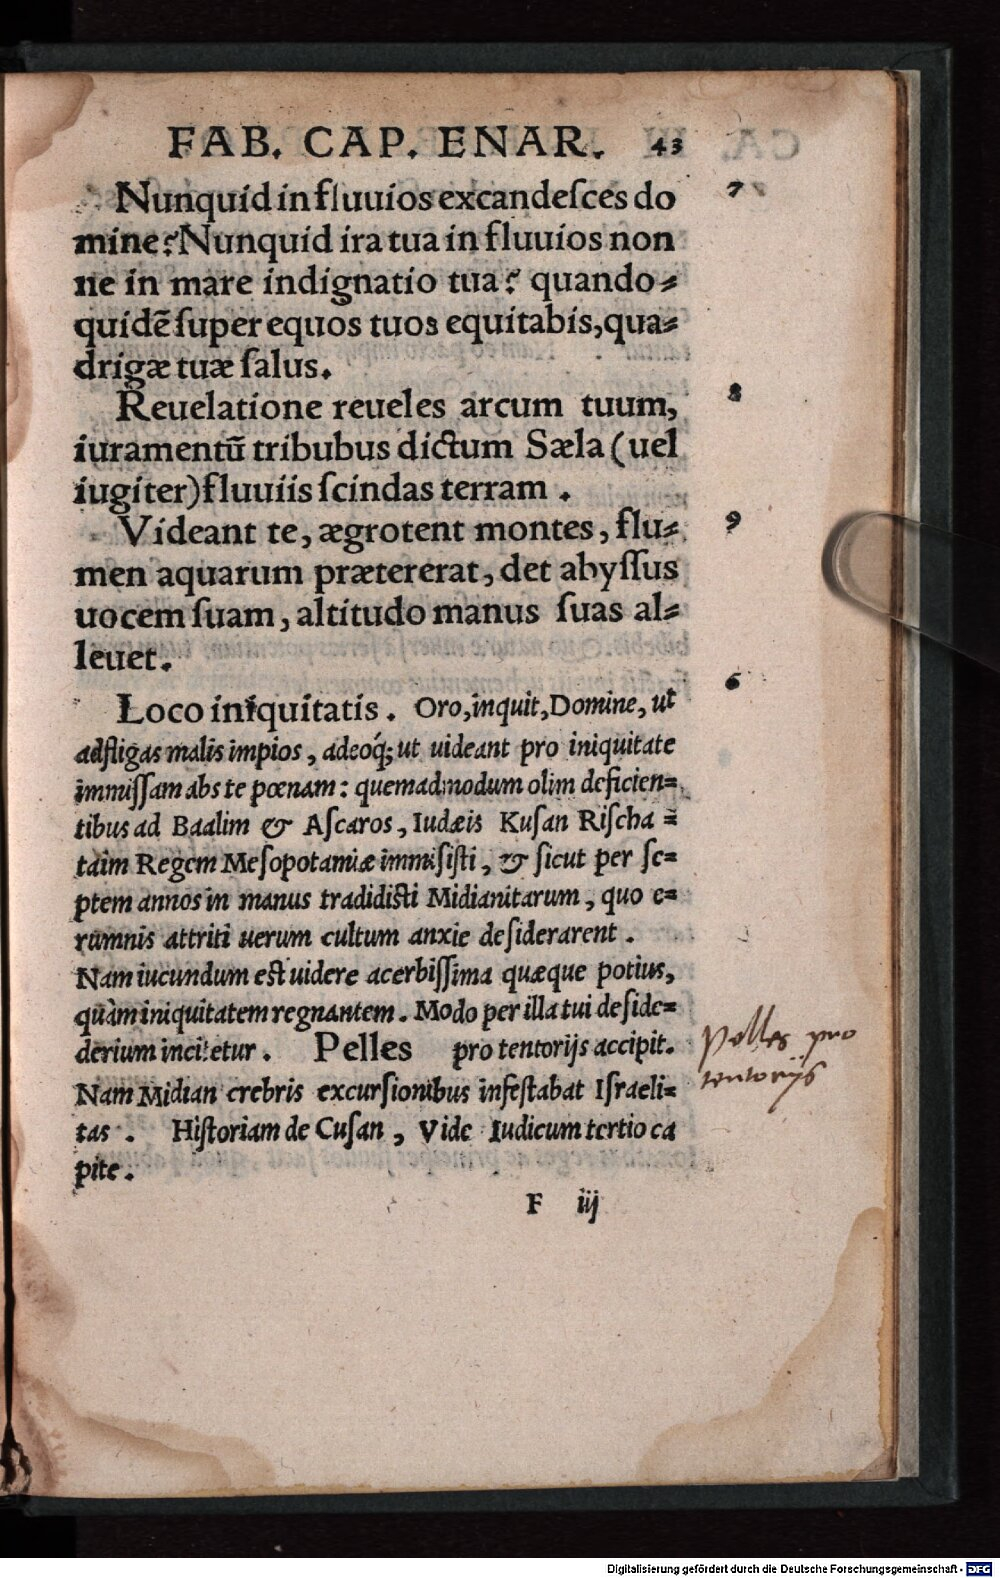 FAB. CAP. ENAR. 43
Nunquid in fluuios excandeſces do 7
mine? Nunquid ira tua in fluuios non
ne in mare indignatio tua? quando⸗
quidẽ ſuper equos tuos equitabis, qua⸗
drigæ tuæ ſalus.
Reuelatione reueles arcum tuum, 8
iuramentũ tribubus dictum Sæla (uel
iugiter) fluuiis ſcindas terram.
Videant te, ægrotent montes, flu⸗ 9
men aquarum prætererat, det abyſſus
uocem ſuam, altitudo manus ſuas al⸗
leuet.
Loco iniquitatis. Oro, inquit, Domine, ut 6
adfligas malis impios, adeoq́; ut uideant pro iniquitate
immiſſam abs te pœnam: quemadmodum olim deficien⸗
tibus ad Baalim & Aſcaros, Iudæis Kuſan Riſcha⸗
taim Regem Meſopotamiæ immiſiſti, & ſicut per ſe⸗
ptem annos in manus tradidiſti Midianitarum, quo e⸗
rumnis attriti uerum cultum anxie deſiderarent.
Nam iucundum eſt uidere acerbiſſima quæque potius,
quàm iniquitatem regnantem. Modo per illa tui deſide⸗
derium incitetur. Pelles pro tentorijs accipit.
Pelles pro
tentorijs
Nam Midian crebris excurſionibus infeſtabat Iſraeli⸗
tas. Hiſtoriam de Cuſan, Vide Iudicum tertio ca
pite.
F iij
Digitalisierung gefördert durch die Deutsche Forschungsgemeinschaft - DFG